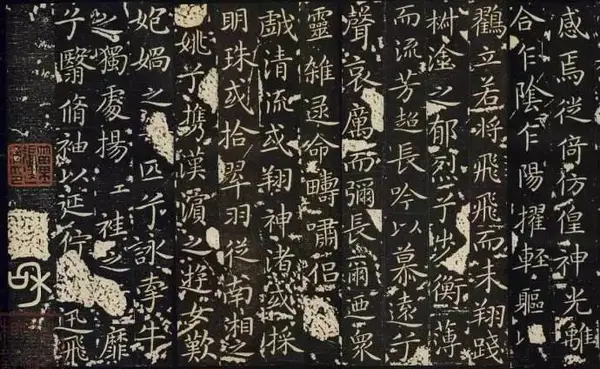 感焉徙倚彷徨神光離
合乍陰乍陽擢輕軀以
鸖立若將飛飛而未翔踐
椒塗之郁烈兮步衡薄
而流芳超長吟以慕遠兮
聲哀厲而彌長爾迺衆
靈雜遝命疇嘯侶
戲清流或翔神渚或採
明珠或拾翠羽從南湘之
姚兮攜漢濱之遊女歎
妃媧之匹兮詠牽牛
之獨處揚袿之靡
兮翳脩袖以延佇迅飛